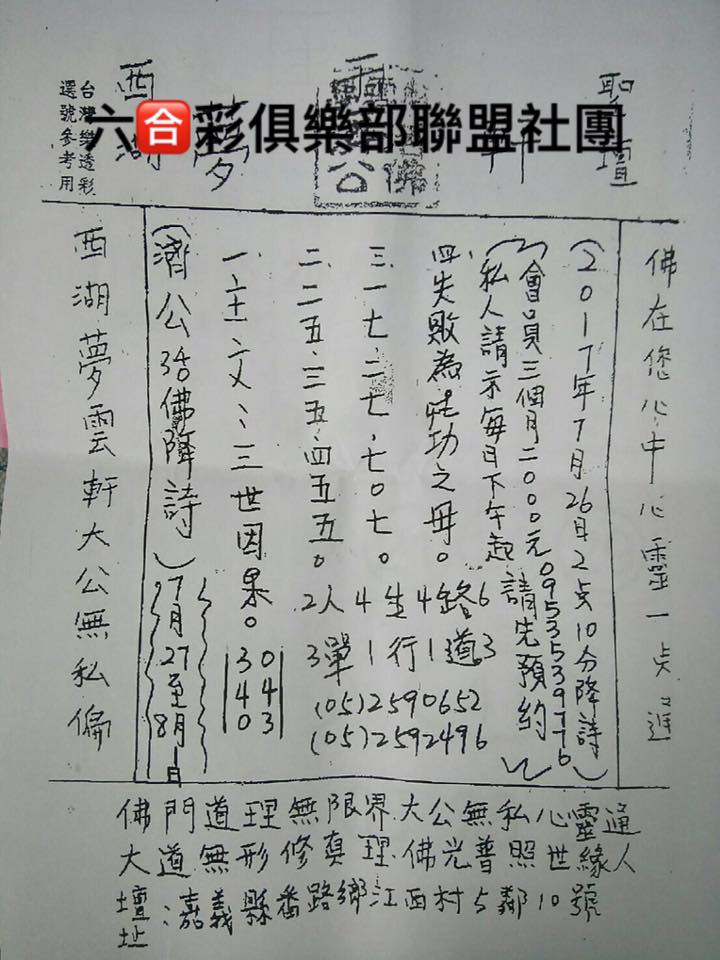 六合彩俱樂部聯盟社團
聖壇
軒
夢
西湖
台灣樂透彩
選號參考用
佛在您心中心靈一点進
(2017年7月26日2点10分降詩)
0953539776
會員三個月二000元
私人請示每日下午起 請先預約
四失敗為成功之母。
三一七、二七、七0七。
二二五、三五、四五五。
三世因果。
2人4生4路6
3單1行1道3
(05)2590652
(05)2592496
30
44
03
(濟公活佛降詩)
7月27至8月1日
西湖夢雲軒大公無私偏
佛門道理無限界大公無私心靈通
大道無形修真理佛光普照世緣人
壇址:嘉義縣番路鄉江西村5鄰10號